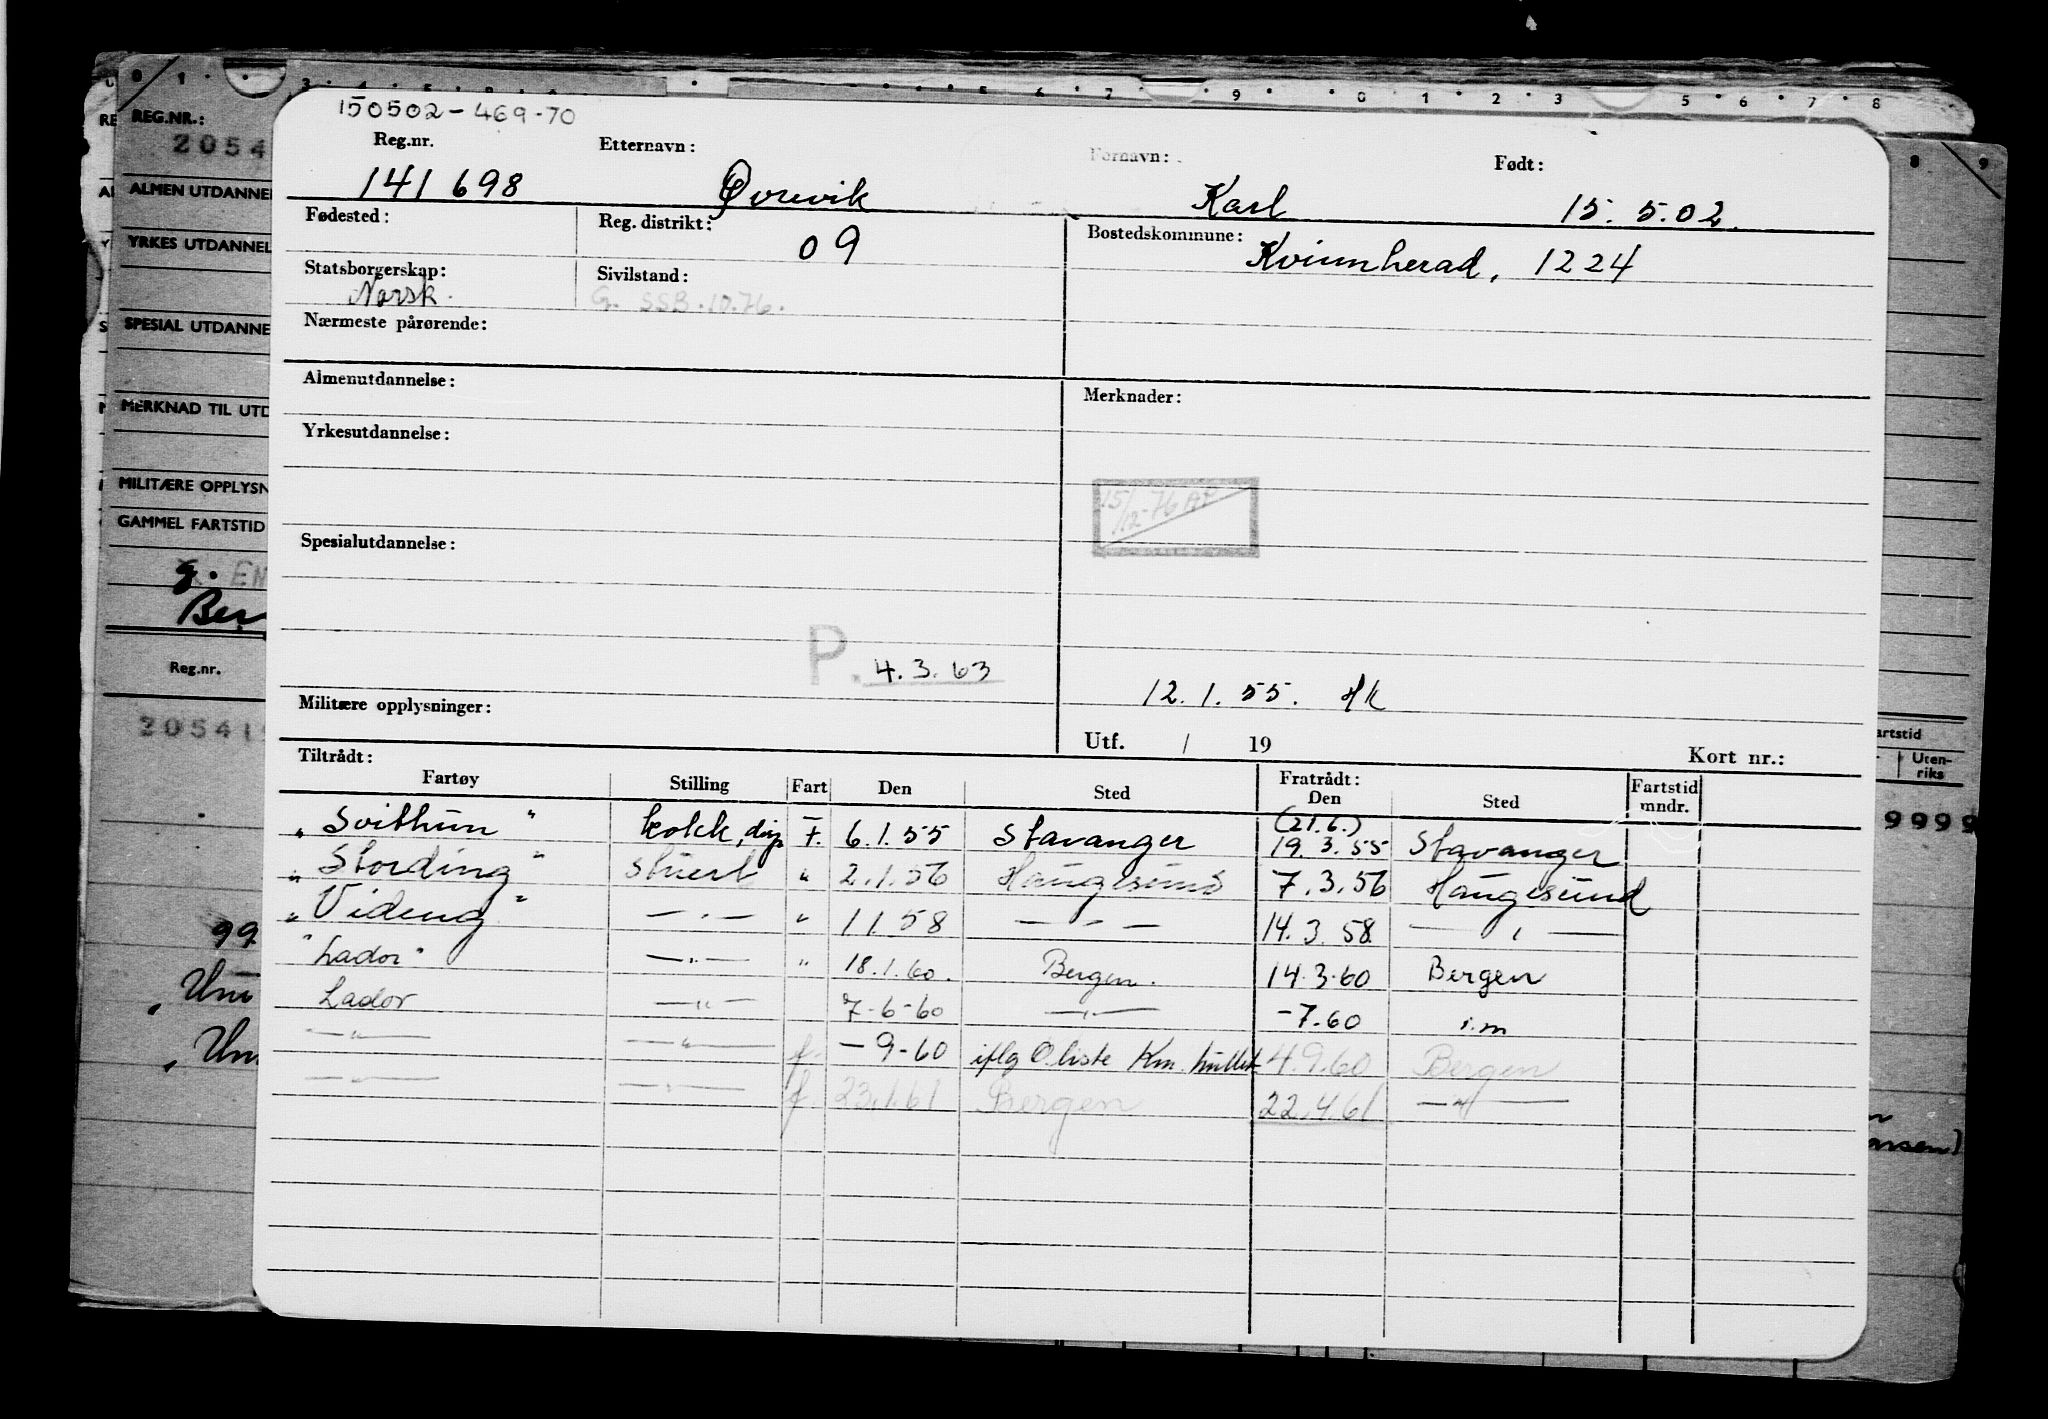 150502-469-70
Reg.nr. Etternavn: Fornavn: Født:
141698 Øvrevik Karl 15.5.02.
Fødested: Reg. distrikt: 09 Bostedskommune: Kvinnherad, 1224
Statsborgerskap: Norsk. Sivilstand: G. SSB.10.76.
Nærmeste pårørende:
Almenutdannelse: Merknader:
Yrkesutdannelse:
15/12-76 AP
Spesialutdannelse:
P. 4.3.63
12.1.55. HK
Militære opplysninger:
Utf. / 19 Kort nr.:
Tiltrådt: Fratrådt:
Fartøy Stilling Fart Den Sted Den Sted Fartstid mndr.
(21.6.)
"Svithun" kokk, F. 6.1.55 Stavanger 19.3.55 Stavanger
"Stording" stuert " 2.1.56 Haugesund 7.3.56 Haugesund
"Videng" —"— " 11 58 —"— 14.3.58. —"—
"Lador" —"— " 18.1.60. Bergen. 14.3.60 Bergen
Lador —"— 7-6-60 —"— -7.60 i.m
—"— —"— f. -9-60 iflg O.liste Km. hullet 4.9.60 Bergen
—"— —"— f. 23.1.61 Bergen 22.4.61 —"—
REG.NR.:
2054
ALMEN UTDANNEL
YRKES UTDANNEL
SPESIAL UTDANNE
MERKNAD TIL UTD
MILITÆRE OPPLYSN
GAMMEL FARTSTID
g. EN
Ber
Reg.nr.
205419
artstid
Uten-
riks
9999
99